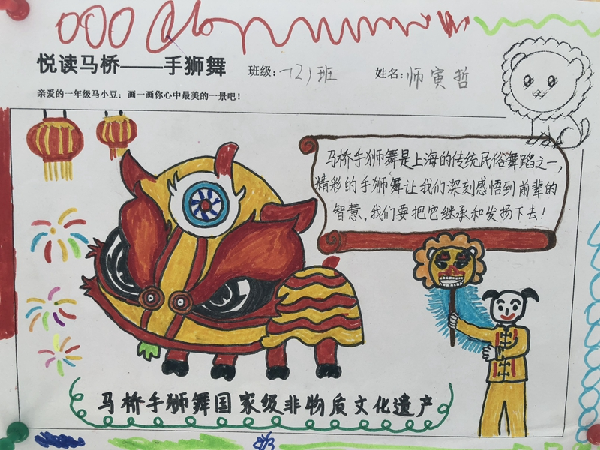 悦读马桥——手狮舞 班级：一(2)班 姓名：师寅哲
亲爱的一年级马小豆：画一画你心中最美的一景吧！
马桥手狮舞是上海的传统民俗舞蹈之一，
精彩的手狮舞让我们深刻感悟到前辈的
智慧，我们要把它继承和发扬下去！
马桥手狮舞国家级非物质文化遗产